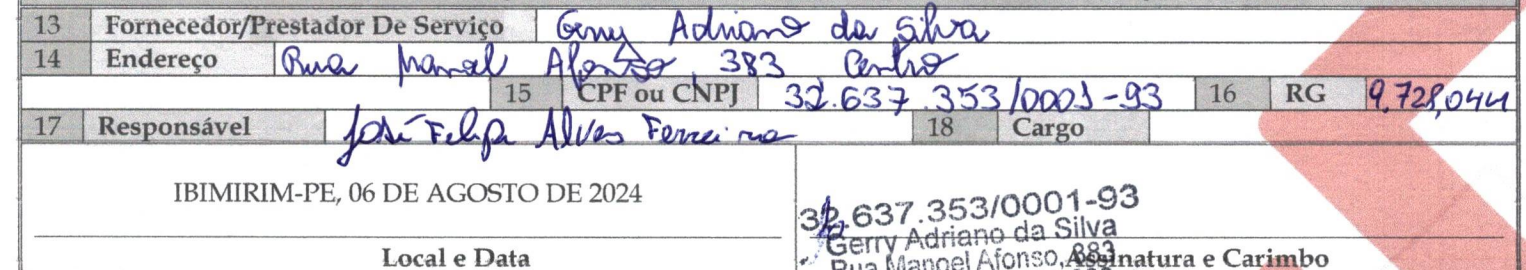 13 Fornecedor/Prestador De Serviço Gerry Adriano da Silva
14 Endereço Rua Manoel Afonso, 383 Centro
15 CPF ou CNPJ 32.637.353/0001-93 16 RG 9,728,044
17 Responsável José Felipe Alves Ferreira 18 Cargo
IBIMIRIM-PE, 06 DE AGOSTO DE 2024
32.637.353/0001-93
Gerry Adriano da Silva
Rua Manoel Afonso, 383
Local e Data
Assinatura e Carimbo